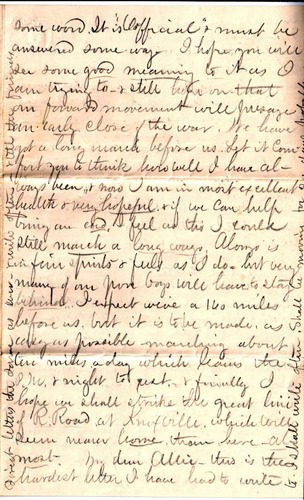 some word. It is "official" & must be
answered some way. I hope you will
see some good meaning to it as I
am trying to & still hope on that
our forward movement will presage
an early close of the war. We have
got a long march before us. Let it com-
fort you to think how well I have al-
ways been, & now I am in most excellent
health & very hopeful, & if we can help
bring an end, I feel as tho I could
still march a long ways. Alonzo is
in fine spirits & feels as I do but very
many of our poor boys will have to stay
behind. I expect we've a 160 miles
before us, but it is to be made, as
easy as possible marching about
ten miles a day which leaves the
P.M. & night to rest, & finally I
hope we shall strike the great line
of R. Road, at Knoxville, which will
seem nearer home than here al-
most. My dear Allie this is the
hardest letter I have had to write
to. I shall write often. Shall be
direct letters the same as ever